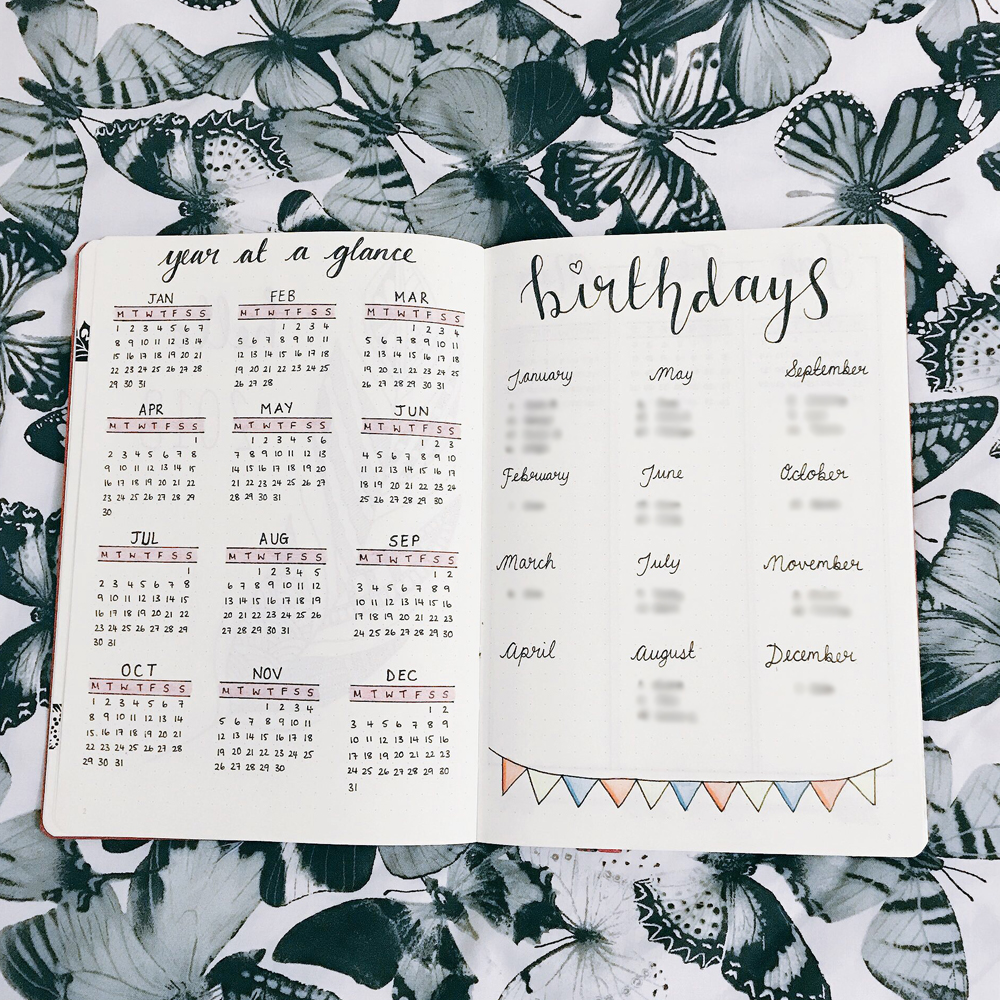 year at a glance
JAN
M T W T F S S
1 2 3 4 5 6 7
8 9 10 11 12 13 14
15 16 17 18 19 20 21
22 23 24 25 26 27 28
29 30 31
FEB
M T W T F S S
1 2 3 4
5 6 7 8 9 10 11
12 13 14 15 16 17 18
19 20 21 22 23 24 25
26 27 28
MAR
M T W T F S S
1 2 3 4
5 6 7 8 9 10 11
12 13 14 15 16 17 18
19 20 21 22 23 24 25
26 27 28 29 30 31
APR
M T W T F S S
1
2 3 4 5 6 7 8
9 10 11 12 13 14 15
16 17 18 19 20 21 22
23 24 25 26 27 28 29
30
MAY
M T W T F S S
1 2 3 4 5 6
7 8 9 10 11 12 13
14 15 16 17 18 19 20
21 22 23 24 25 26 27
28 29 30 31
JUN
M T W T F S S
1 2 3
4 5 6 7 8 9 10
11 12 13 14 15 16 17
18 19 20 21 22 23 24
25 26 27 28 29 30
JUL
M T W T F S S
1
2 3 4 5 6 7 8
9 10 11 12 13 14 15
16 17 18 19 20 21 22
23 24 25 26 27 28 29
30 31
AUG
M T W T F S S
1 2 3 4 5
6 7 8 9 10 11 12
13 14 15 16 17 18 19
20 21 22 23 24 25 26
27 28 29 30 31
SEP
M T W T F S S
1 2
3 4 5 6 7 8 9
10 11 12 13 14 15 16
17 18 19 20 21 22 23
24 25 26 27 28 29 30
OCT
M T W T F S S
1 2 3 4 5 6 7
8 9 10 11 12 13 14
15. 16 17 18 19 20 21
22 23 24 25 26 27 28
29 30 31
NOV
M T W T F S S
1 2 3 4
5 6 7 8 9 10 11
12 13 14 15 16 17 18
19 20 21 22 23 24 25
26 27 28 29 30
DEC
M T W T F S S
1 2
3 4 5 6 7 8 9
10 11 12 13 14 15 16
17 18 19 20 21 22 23
24 25 26 27 28 29 30
31
birthdays
January
May
September
February
June
October
March
July
November
April
August
December